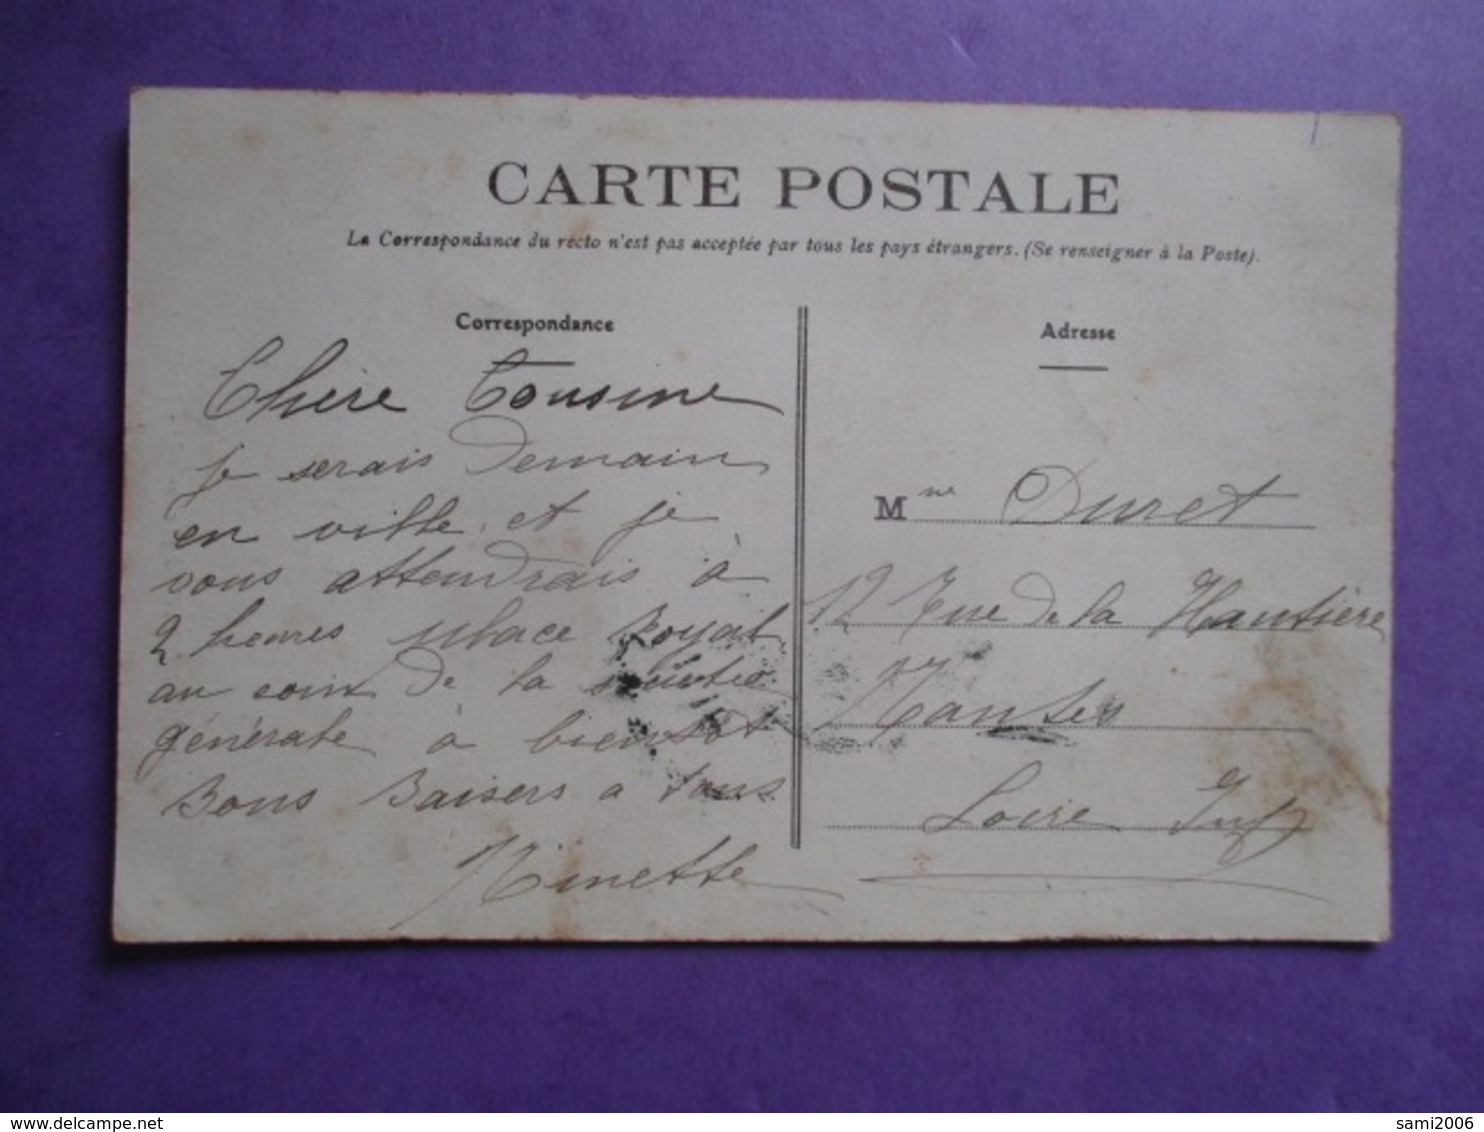 CARTE POSTALE
La Correspondance du recto n'est pas acceptée par tous les pays étrangers. (Se renseigner à la Poste).
Correspondance
Chère Cousine
je serais Demain
en ville, et je
vous attendrais à
2 heures place Royal
au coin de la
générale à bientot
Bons Baisers a tous
Ninette
Adresse
Mme Duret
12 Rue de la Hautière
Nantes
Loire Inf
delcampe.net
sami2006